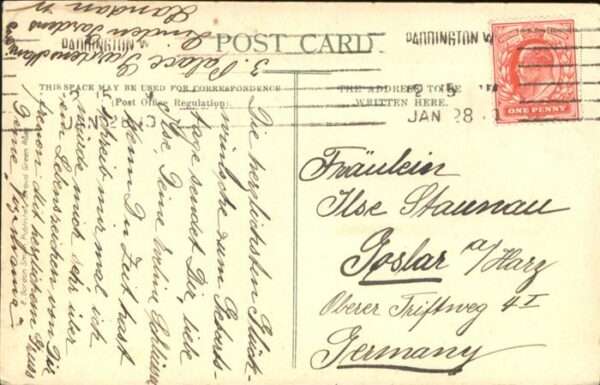 3. Palace Gardens
Linden Gardens
London W
PADDINGTON W
PADDINGTON W
POST CARD.
THIS SPACE MAY BE USED FOR CORRESPONDENCE
(Post Office Regulation).
THE ADDRESS TO BE
WRITTEN HERE.
JAN 28
JAN 28
ONE PENNY
Die herzlichsten Glück-
wünsche zum Geburts-
tage sendet Dir, liebe
Ilse Deine
Wenn Du Zeit hast
schreib mir mal ich
würde mich sehr über
ein Lebenszeichen von Dir
freuen. Mit herzlichem Gruss
Deine
Fräulein
Ilse Staunau
Goslar a/Harz
Oberer Triftweg 4 I
Germany